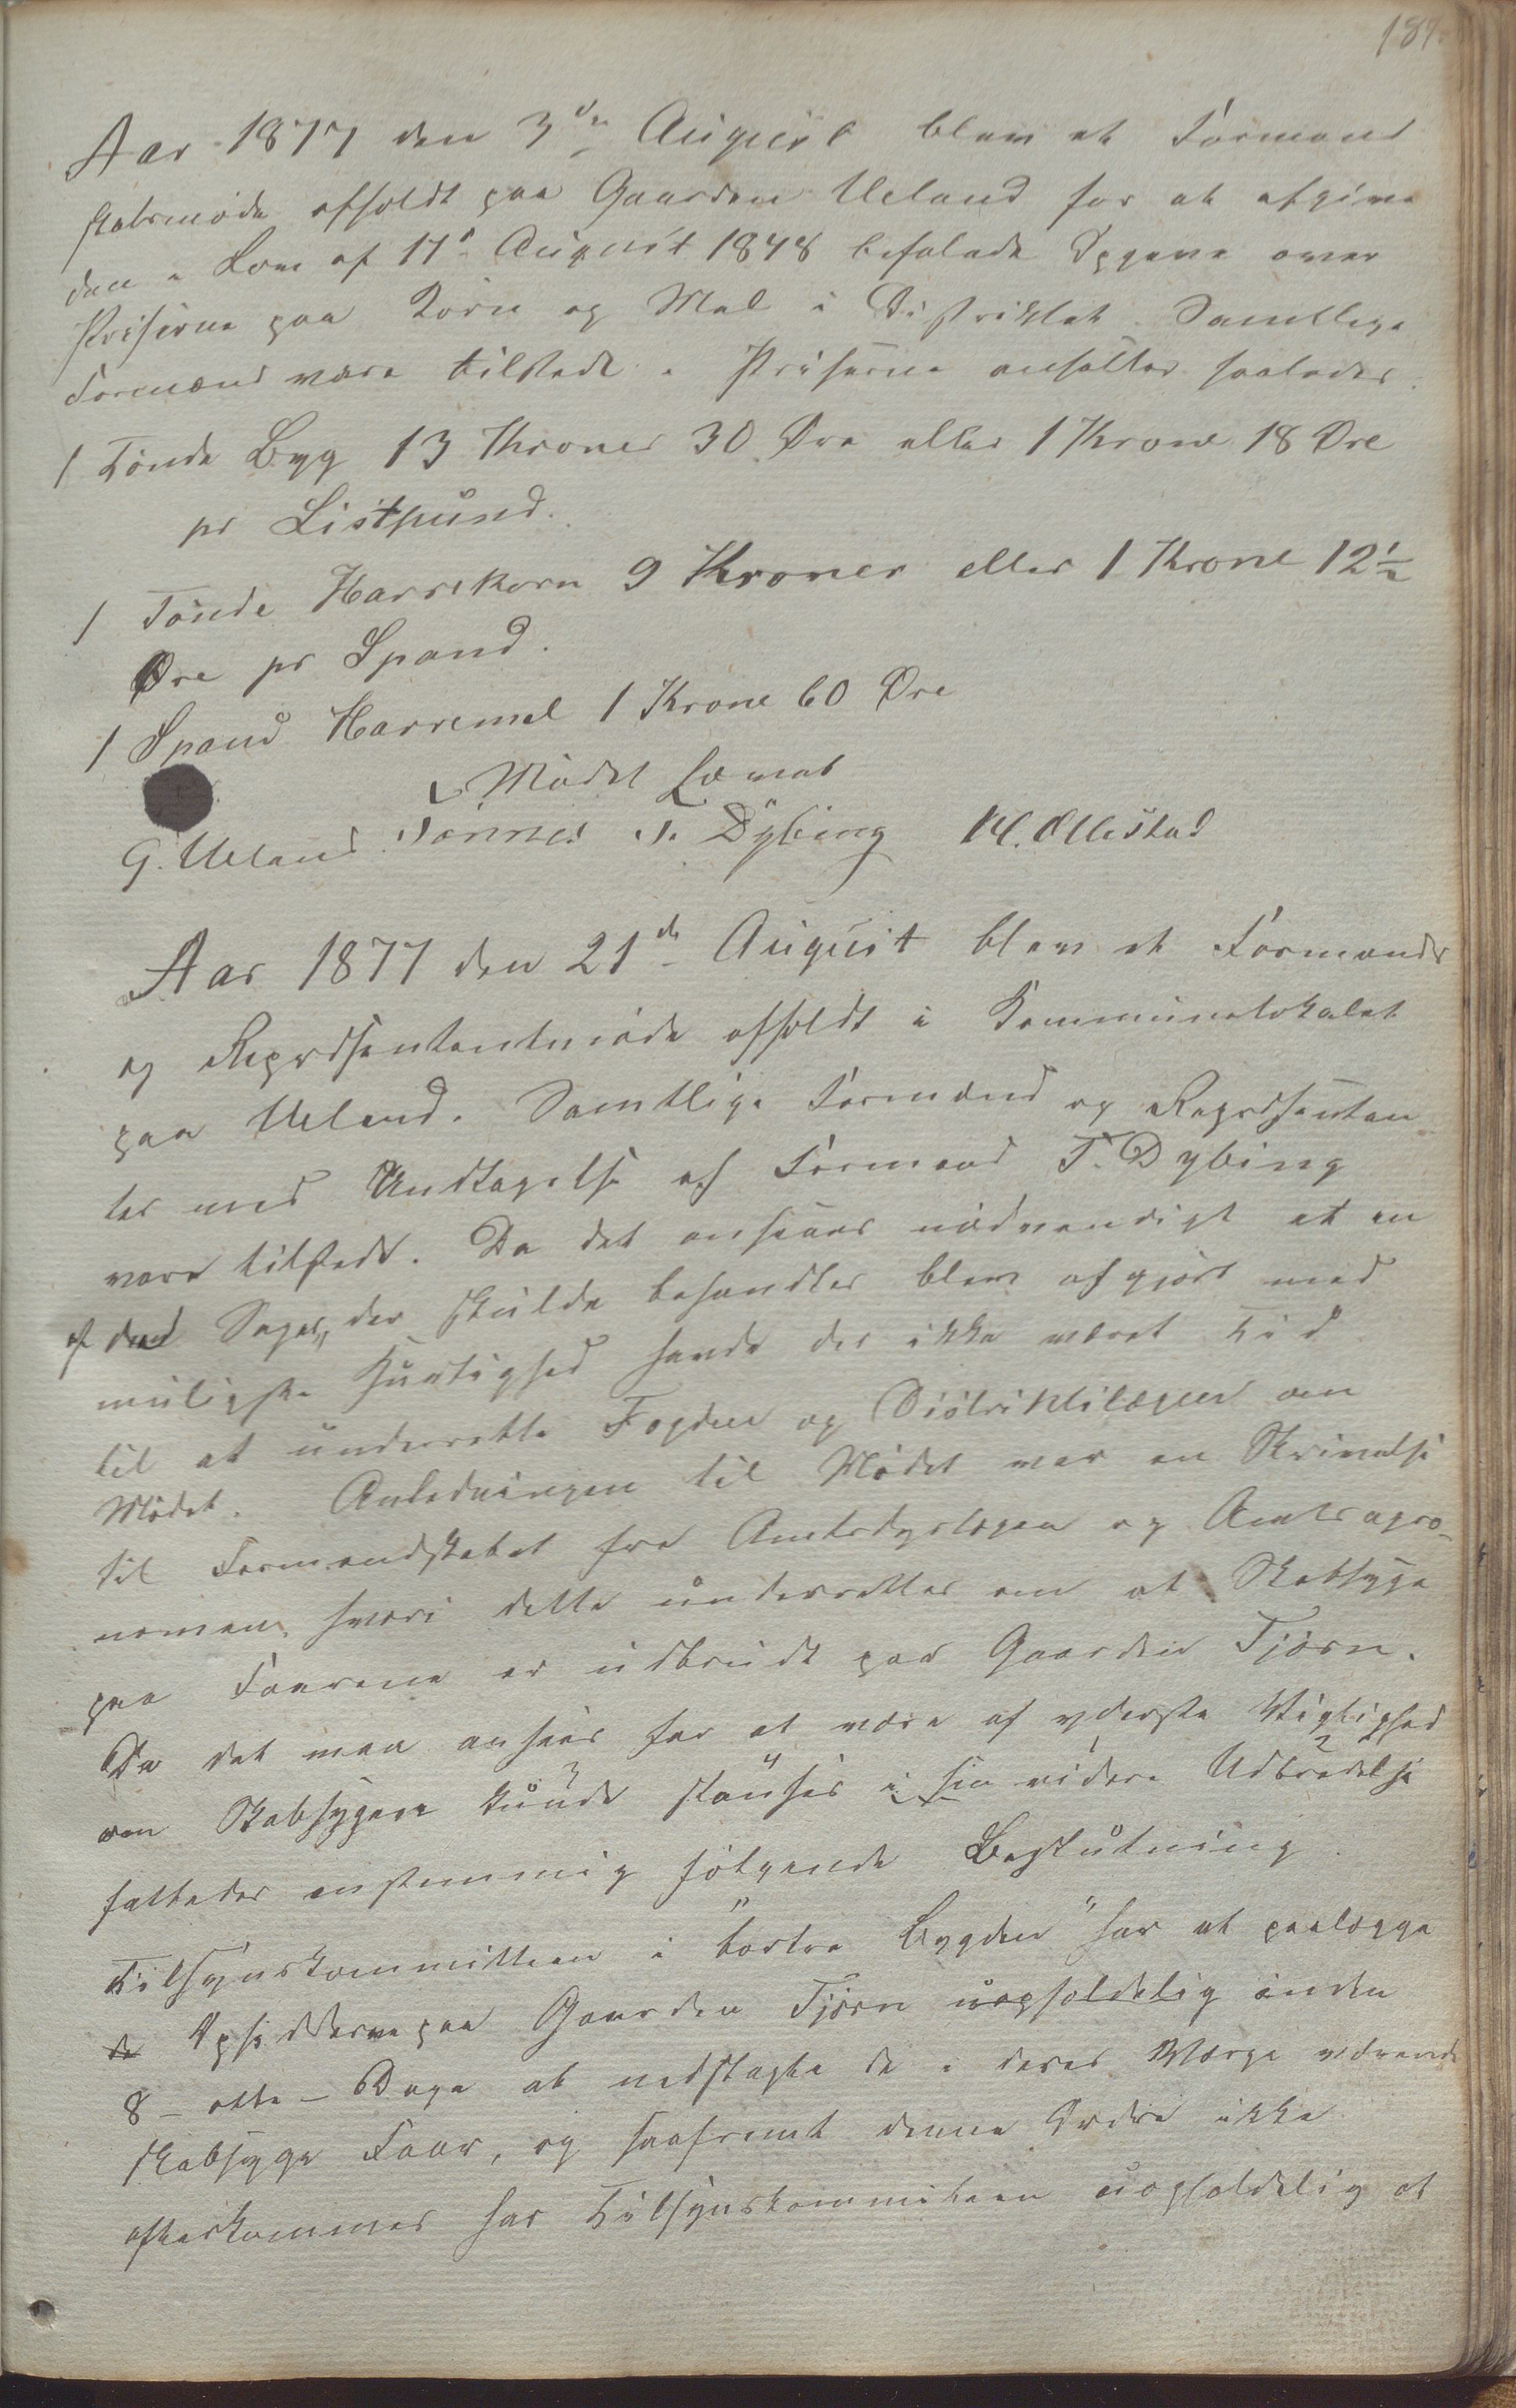 187.
Aar 1877 den 3de August blev et Formand
skabsmøde afholdt paa Gaarden Ueland for at afgive
den i Lov af 11te August 1848 befalede Opgave over
Priserne paa Korn og Mel i Distriktet. Samtlige
Formænd vare tilstede. Priserne ansattes saaledes.
1 Tønde Byg 13 Kroner 30 Øre eller 1 Krone 18 Øre
pr Listpund.
1 Tønde Havrekorn 9 Kroner eller 1 Krone 12½
Øre pr Spand.
1 Spand Havremel 1 Krone 60 Øre
Mødet hævet
G. Ueland. Tønnes T. Dybing M. Ollestad
Aar 1877 den 21de August blev et Formands
og Repræsentantmøde afholdt i Kommunelokalet
paa Ueland. Samtlige Formænd og Repræsentan
ter med Undtagelse af Formand T. Dybing
vare tilstede. Da det ansaaes nødvendigt at en
af de Sager, der skulde behandles blev afgjort med
muligste Hurtighed havde der ikke været Tid
til at underrette Fogden og Distriktslægen om
Mødet. Anledningen til Mødet var en Skrivelse
til Formandskabet fra Amtsdyrlægen og Amtsagro-
nomen, hvori dette underrettes om at Skabsyge
paa Faarene er udbrudt paa Gaarden Tjørn.
Da det maa ansees for at være af yderste Vigtighed
om Skabsygens kunde standses i sin videre Udbredelse
fattedes enstemmig følgende Beslutning.
Tilsynskommitteen i "Østre Bygden" har at paalægge
de Opsidderne paa Gaarden Tjørn uopholdelig inden
8 - otte - Dage at nedslagte de i deres Værge værende
skabsyge Faar, og saafremt denne Ordre ikke
efterkommes har Tilsynskommiteen uopholdelig at